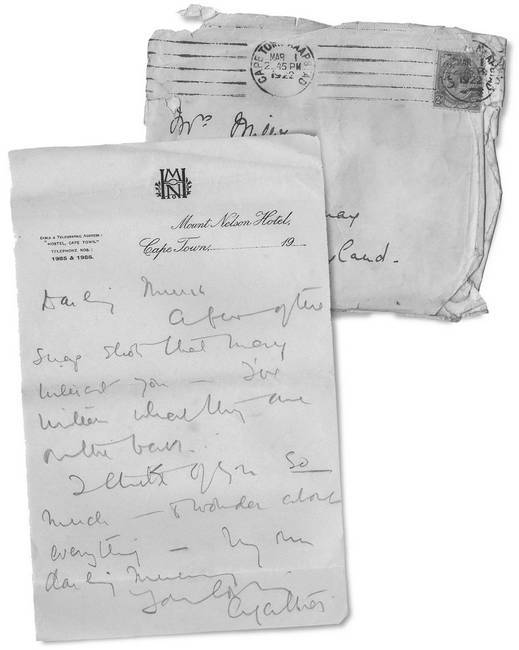 CAPE TOWN KAAPSTAD
MAR 1
2.45 PM
1922
Mrs Miller
land.
MHN
Mount Nelson Hotel,
Cable & Telegraphic Address:
"HOSTEL, CAPE TOWN."
Telephone Nos:
1985 & 1986.
Cape Town, 19
Darling
A few of the
snap shots that may
interest you – I've
written what they are
on the back.
I think of you so
much – & wonder about
everything – My own
darling
Your loving